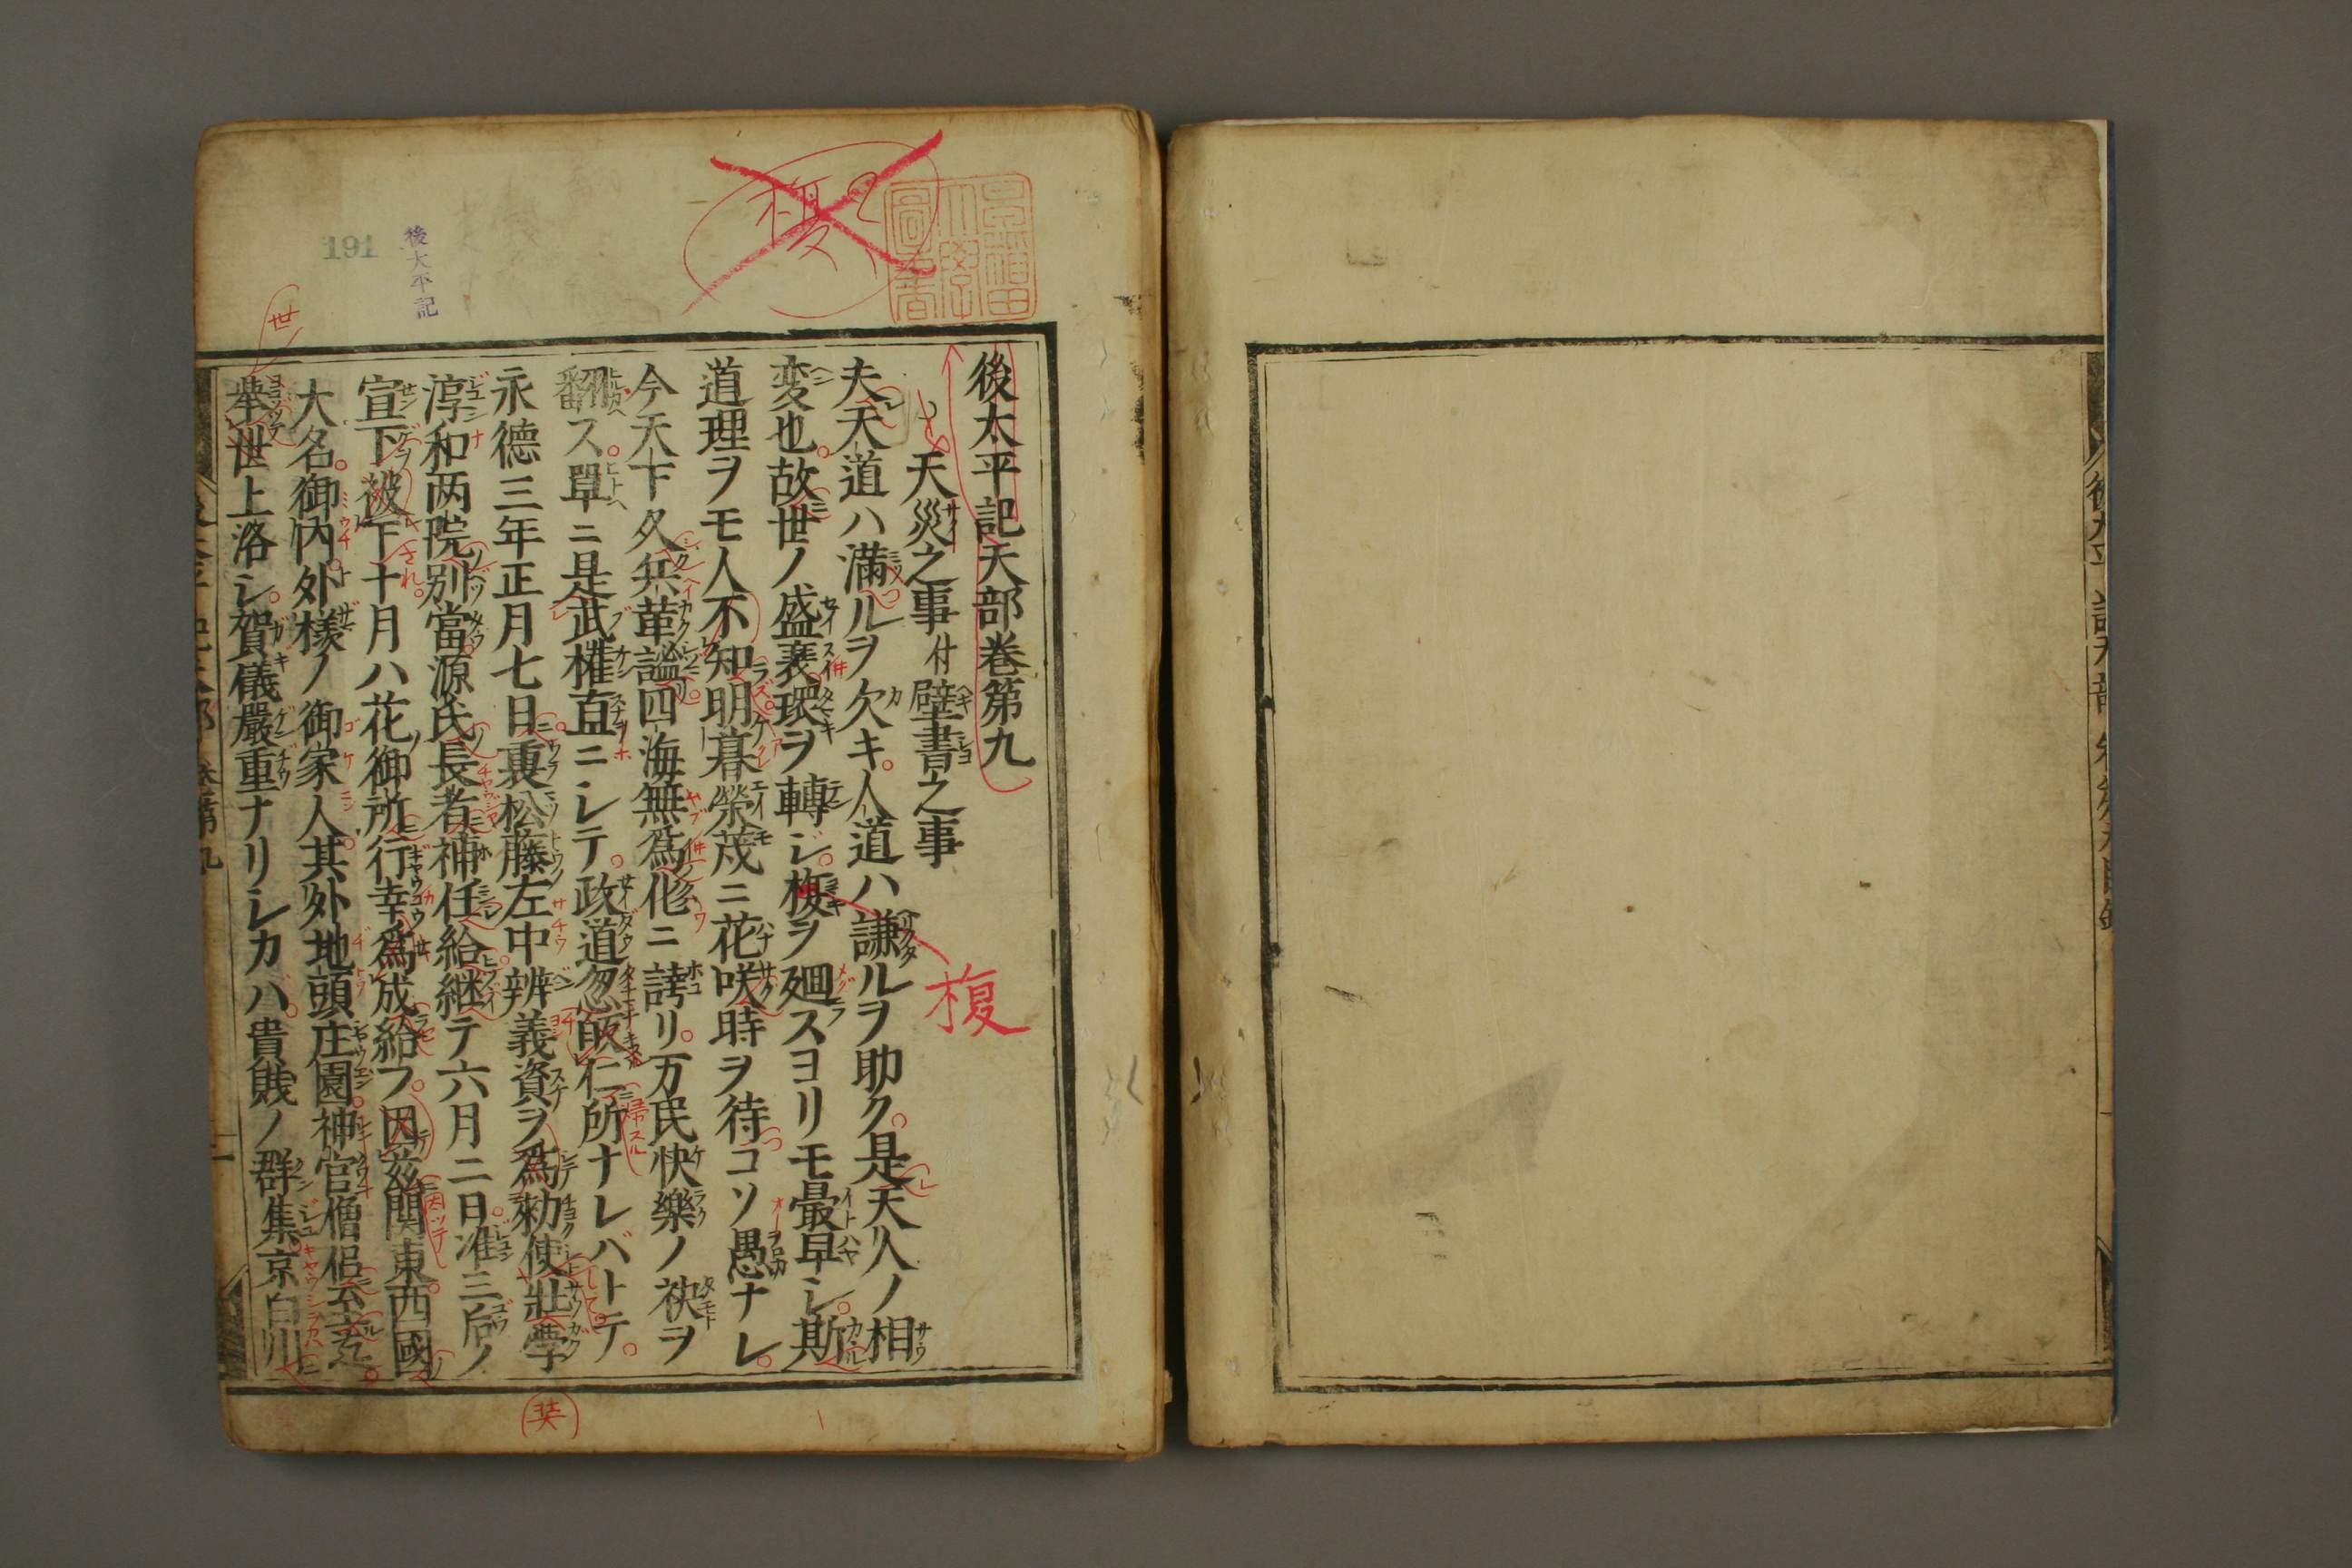 後太平記天部巻第九
天災之事 付壁書之事
夫天道ハ満ルヲ欠キ人道ハ謙ルヲ助ク是天人ノ相
変也故世ノ盛衰環ヲ轉ジ榎ヲ廻スヨリモ最早シ斯
道理ヲモ人不知明暮榮茂ニ花咲時ヲ待コソ愚ナレ
今天下久兵革謐四海無為化ニ誇リ万民快樂ノ袂ヲ
翻ス單ニ是武權直ニシテ政道忽皈仁所ナレバトテ
永德三年正月七日裏松藤左中辨義資ヲ為勅使壯學
淳和两院別當源氏長者神任給継テ六月二日准三后ノ
宣下被下十月ハ花御所行幸為成給フ因茲関東西國
大名御内外樣ノ御家人其外地頭庄園神官僧侶至迄
挙世上洛シ賀儀嚴重ナリシカバ貴賎ノ群集京白川
後太平記
191
世
複
榎
帰スル
因ッテ
奘